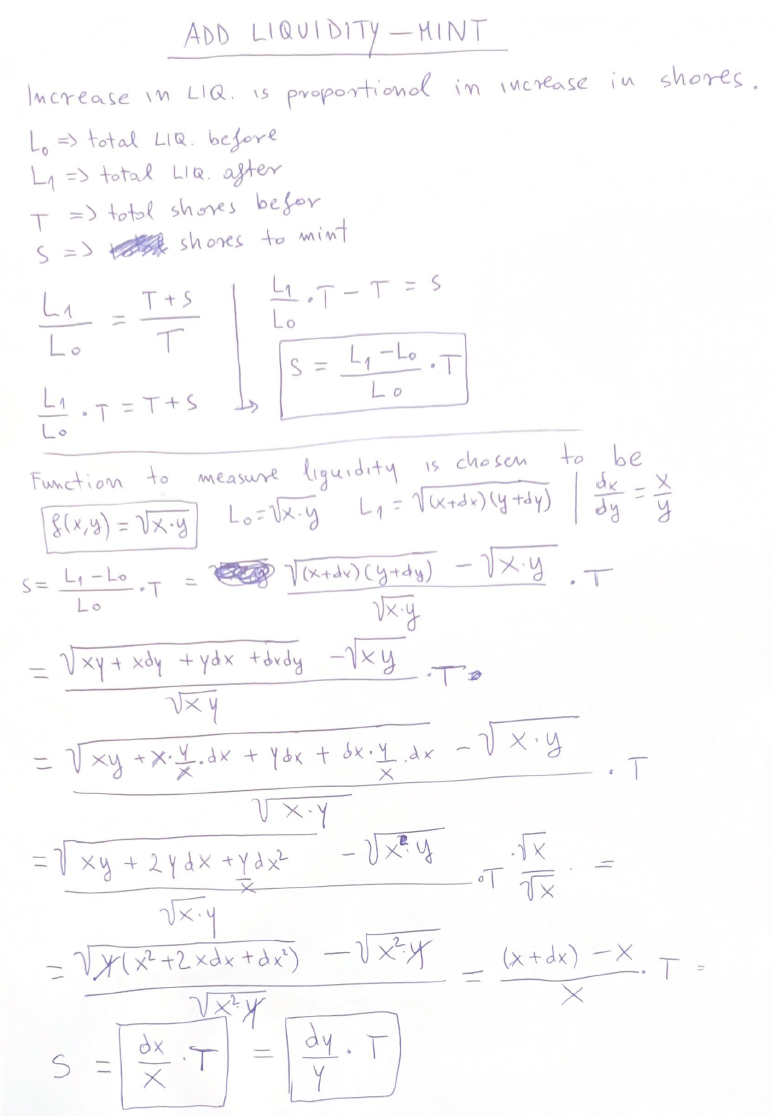 ADD LIQUIDITY — MINT
Increase in LIQ. is proportional in increase in shores.
L₀ => total LIQ. before
L₁ => total LIQ. after
T => total shores befor
S => shores to mint
L₁/L₀ = (T+S)/T
L₁/L₀ · T = T+S
L₁/L₀ · T − T = S
S = (L₁ − L₀)/L₀ · T
Function to measure liquidity is chosen to be
f(x,y) = √(x·y) L₀ = √(x·y) L₁ = √((x+dx)(y+dy)) | dx/dy = x/y
S = (L₁ − L₀)/L₀ · T = (√((x+dx)(y+dy)) − √(x·y))/√(x·y) · T
= (√(xy + xdy + ydx + dxdy) − √(xy))/√(xy) · T
= (√(xy + x·y/x·dx + ydx + dx·y/x·dx) − √(x·y))/√(x·y) · T
= (√(xy + 2ydx + y/x dx²) − √(x·y))/√(x·y) · T · √x/√x =
= (√(y(x² + 2xdx + dx²)) − √(x²·y))/√(x²·y) = ((x+dx) − x)/x · T =
S = dx/x · T = dy/y · T